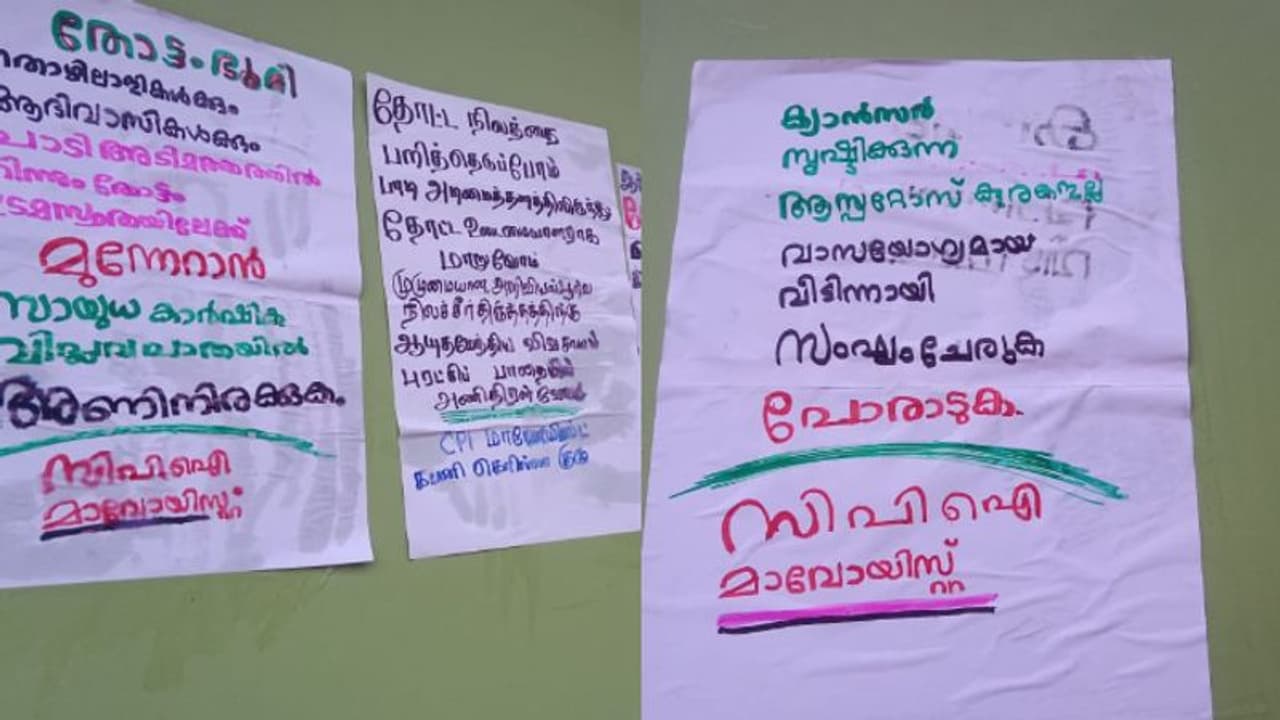 തോട്ടം ഭൂമി
തൊഴിലാളികൾക്കും
ആദിവാസികൾക്കും
പാടി അടിമത്തത്തിൽ
നിന്നും തോട്ടം
ഉടമസ്ഥതയിലേക്ക്
മുന്നേറാൻ
സായുധ കാർഷിക
വിപ്ലവ പാതയിൽ
അണിനിരക്കുക.
സിപിഐ
മാവോയിസ്റ്റ്
தோட்ட நிலத்தை
பறித்தெடுப்போம்
பாடி அடிமைத்தனத்திலிருந்து
தோட்ட உடமையாளராக
மாறுவோம்
முழுமையான
நிலச்சீர்திருத்தத்திற்கு
ஆயுதமேந்திய விவசாயம்
புரட்சி பாதையில்
அணிதிரள்வோம்
CPI மாவோயிஸ்ட்
கபனி
ക്യാൻസർ
സൃഷ്ടിക്കുന്ന
ആസ്ബറ്റോസ് കൂരകളല്ല
വാസയോഗ്യമായ
വീടിന്നായി
സംഘംചേരുക
പോരാടുക.
സിപിഐ
മാവോയിസ്റ്റ്